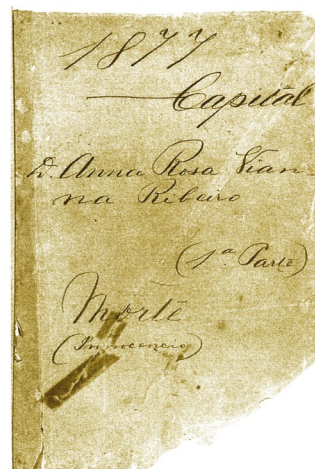 1877
Capital
D. Anna Rosa Vian-
na Ribeiro
(1ª Parte)
Morte
(Innocencio)